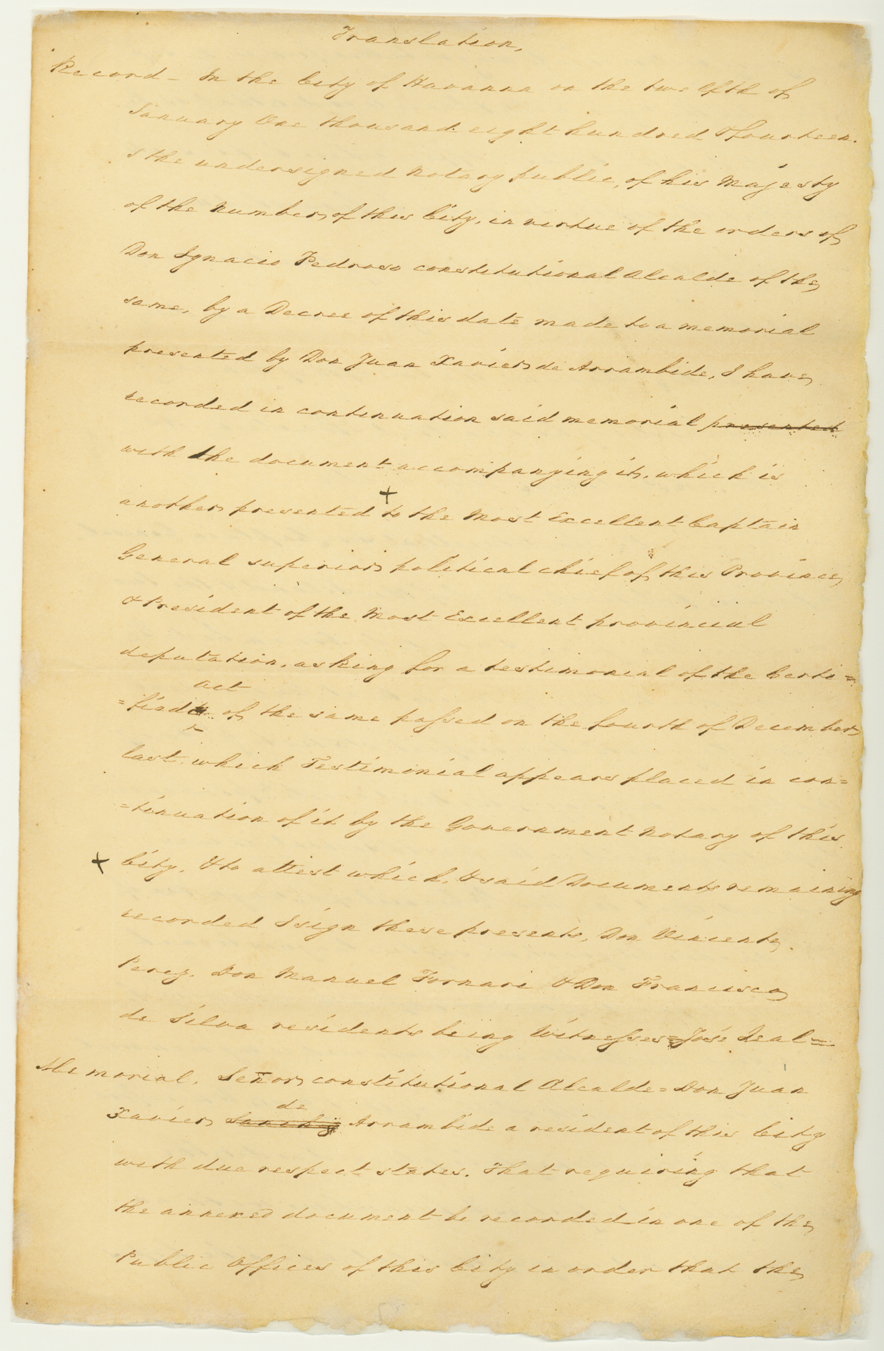 Translation,
Record - In the City of Havanna on the twelfth of
January One thousand eight hundred & fourteen.
I the undersigned Notary public, of his Majesty
of the Number, of this City, in virtue of the orders of
Don Ignacio Pedroso constitutional Alcalde of the
same, by a Decree of this date made to a memorial
presented by Don Juan Xavier de Arrambide, I have
recorded in continuation said memorial presented
with the document accompanying it, which is
another presented to the Most Excellent Captain
General superior political chief of this Province,
& President of the Most Excellent provincial
deputation, asking for a testimonial of the Certi=
act
=fied of the same passed on the fourth of December
last. which Testimonial appears placed in con=
=tinuation of it by the Government Notary of this
City. & to attest which, & said Documents remaining
recorded I sign these presents, Don Vincente
Perez. Don Manuel Fornari & Don Francisco
de Silva residents being Witnesses = José Leal =
Memorial. Señor constitutional Alcalde = Don Juan
de
Xavier Arrambide a resident of this City
with due respect states. That requiring that
the annexed document be recorded in one of the
Public Offices of this City in order that the